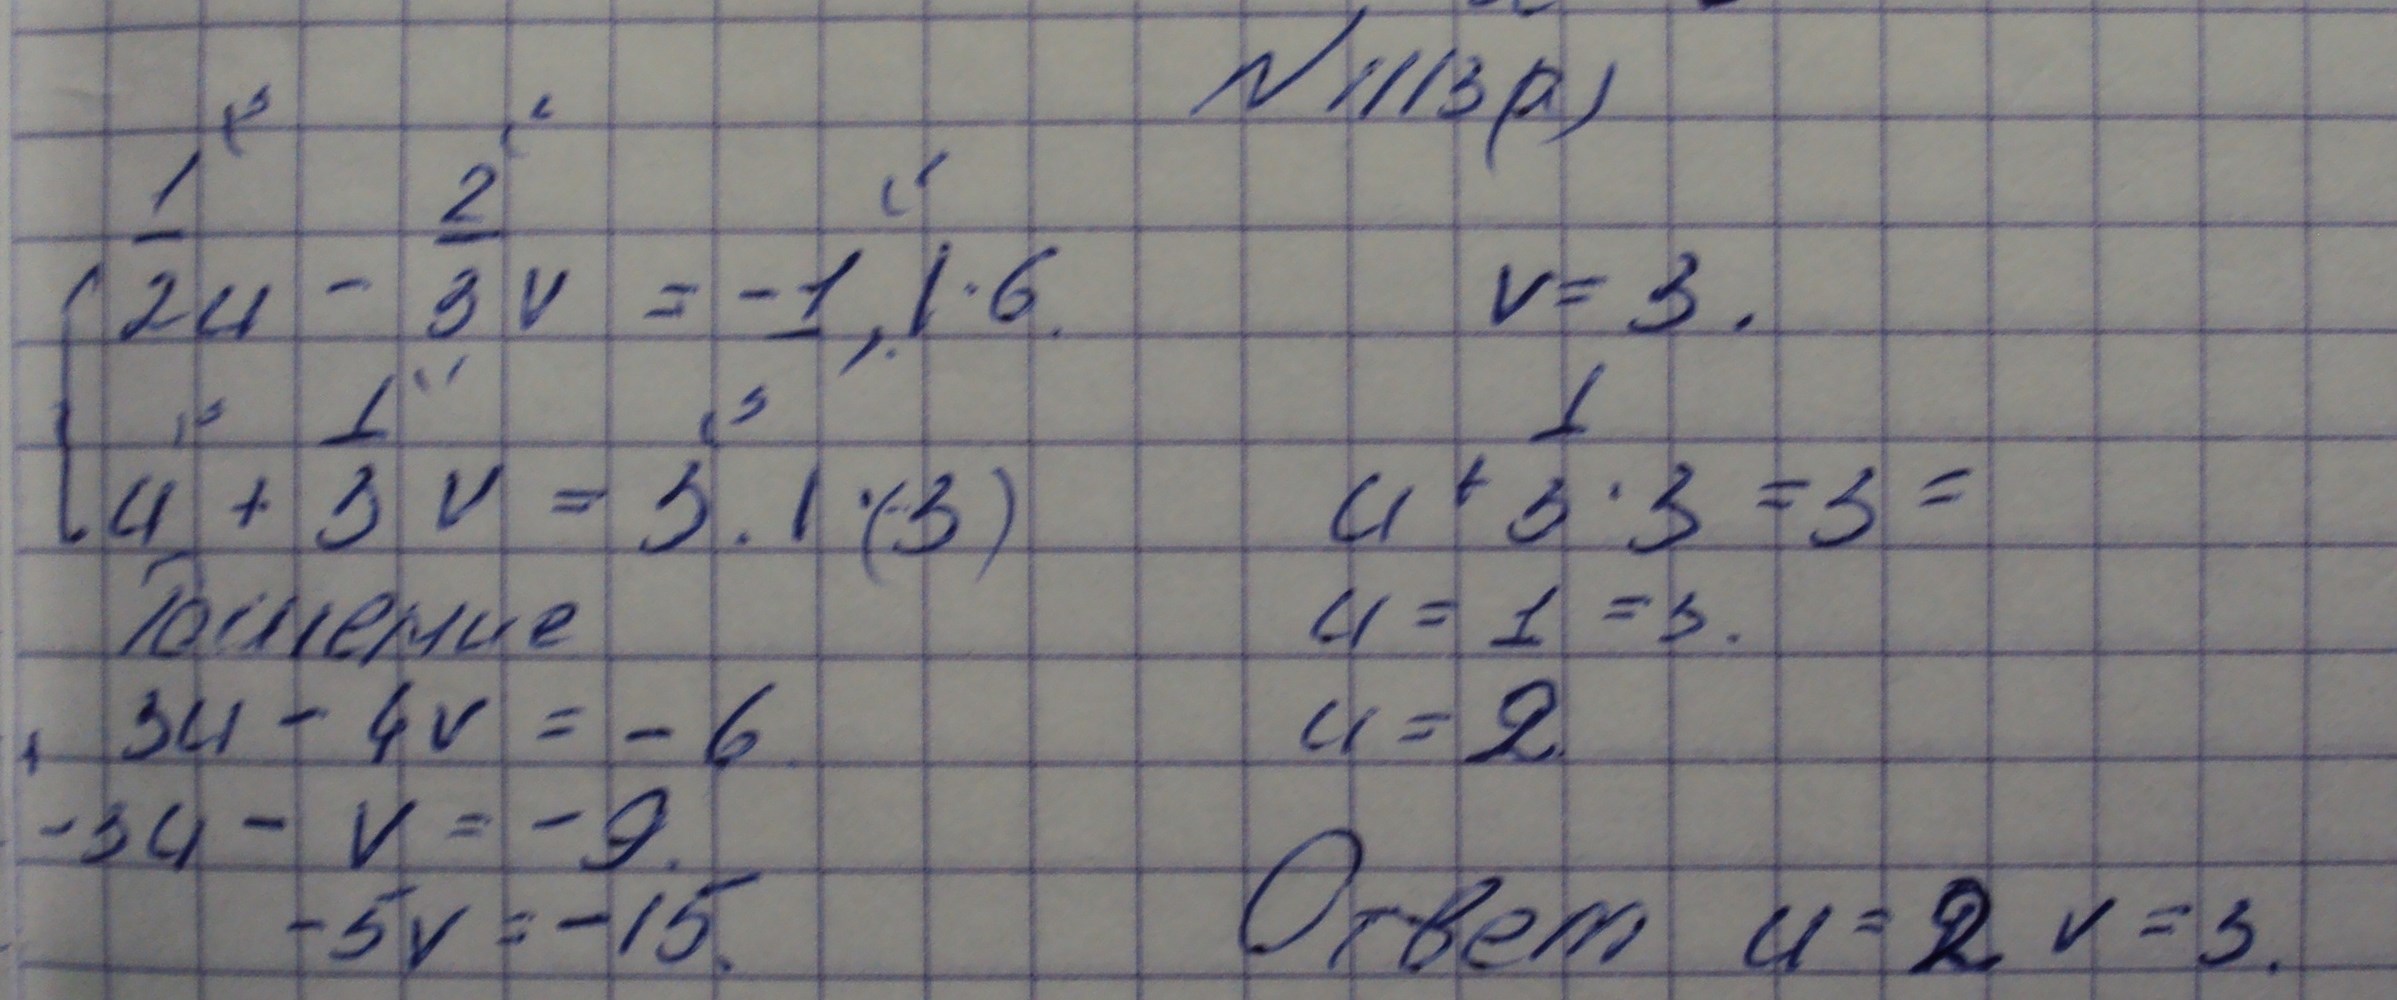 N 1113 (а)
1/2 u - 2/3 v = -1, | · 6.
u + 1/3 v = 3. | · (-3)
3u - 4v = -6
+
-3u - v = -9.
-5v = -15.
v = 3.
u + 1/3 · 3 = 3 =
u = 1 = 3.
u = 2
Ответ u = 2 v = 3.